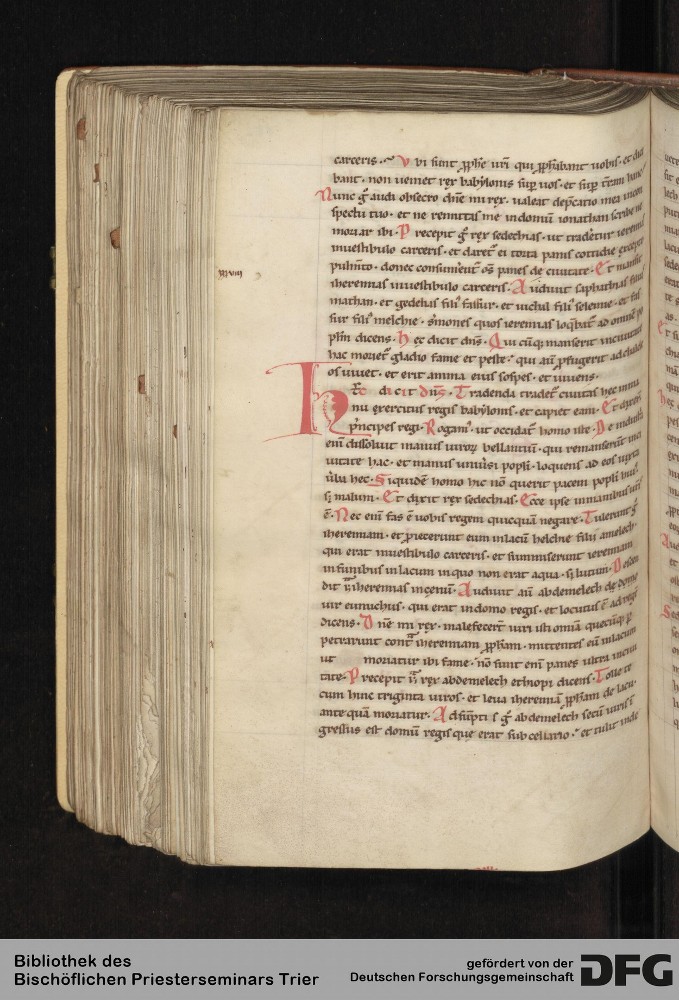 carceris. Vbi sunt ꝓphẽ uri qui ꝓphabant uobis. et
bant. non ueniet rex babylonis sup uos. et sup
Nunc g̃ audi obsecro dñe mi rex. ualeat
spectu tuo. et ne remittas me in domũ ionathan scribe ne
moriar ibi. Precepit g̃ rex sedechias. ut traderetur
in uestibulo carceris. et daret ei torta panis cottidie
pulmto. donec consumerent os panes de ciuitate. Et
xxxviii
iheremias in uestibulo carceris. Audiuit
mathan. et gedelias fili fassur. et iuchal fili selemie. et
sur fili melchie. smones quos ieremias loqbat ad omnẽ
plm dicens. Hec dicit dns. Qui cũq manserit in ciuitate
hac moriet gladio fame et peste. qui aũ ꝓfugerit ad
os uiuet. et erit anima eius sospes. et uiuens.
Hec dicit dns. Tradenda tradet ciuitas hec in
nu exercitus regis babylonis. et capiet eam. Et
principes regi. Rogam. ut occidat homo iste.
enĩ dissoluit manus uiroꝝ bellantiũ. qui remanserunt
uitate hac. et manus uniusi popli. loquens ad eos iuxta
uba hec. Siquidẽ homo hic nõ querit pacem popli
s malum. Et dixit rex sedechias. Ecce ipse in manibus
ẽ. Nec enĩ fas ẽ uobis regem quicquã negare. Tulerunt g̃
iheremiam. et ꝓiecerunt eum in lacũ helchie filii amelech.
qui erat in uestibulo carceris. et summiserunt ieremiam
in funibus in lacum in quo non erat aqua. s lutum.
dit iheremias in cenũ. Audiuit aũ abdemelech
uir eunuchus. qui erat in domo regis. et locutus ẽ ad
dicens. Dñe mi rex. malefecert uiri isti omia
petrarunt cont iheremiam ꝓpham. mittentes eũ in lacum
ut moriatur ibi fame. nõ sunt enĩ panes ultra in
tate. Precepit rex abdemelech ethiopi dicens. Tolle te
cum hinc triginta uiros. et leua iheremiã ꝓpham de lacu.
ante quã moriatur. Adsũpti s g̃ abdemelech secũ uiris
gressus est domũ regis que erat sub cellario. et tulit inde
Bibliothek des
Bischöflichen Priesterseminars Trier
gefördert von der
Deutschen Forschungsgemeinschaft
DFG